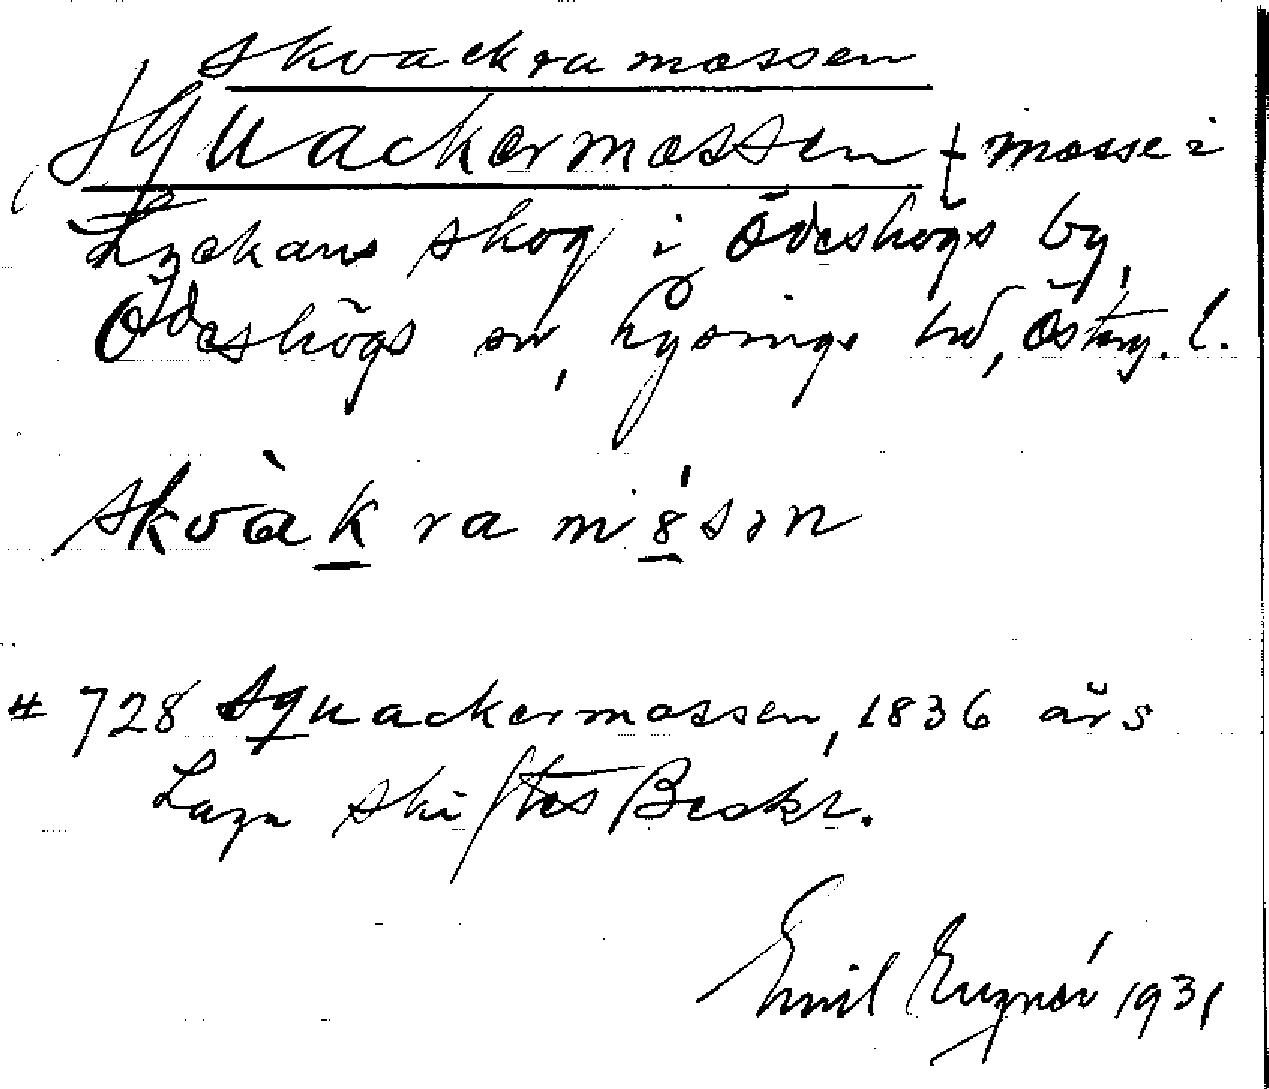 Skvackramossen
Squackermossen f mosse i
Lyckans skog i Ödeshögs by,
Ödeshögs sn, Lysings hd, Östg. l.
skvàkramósən
# 728 Squackermossen, 1836 års
Laga skiftes Beskr.
Emil 1931